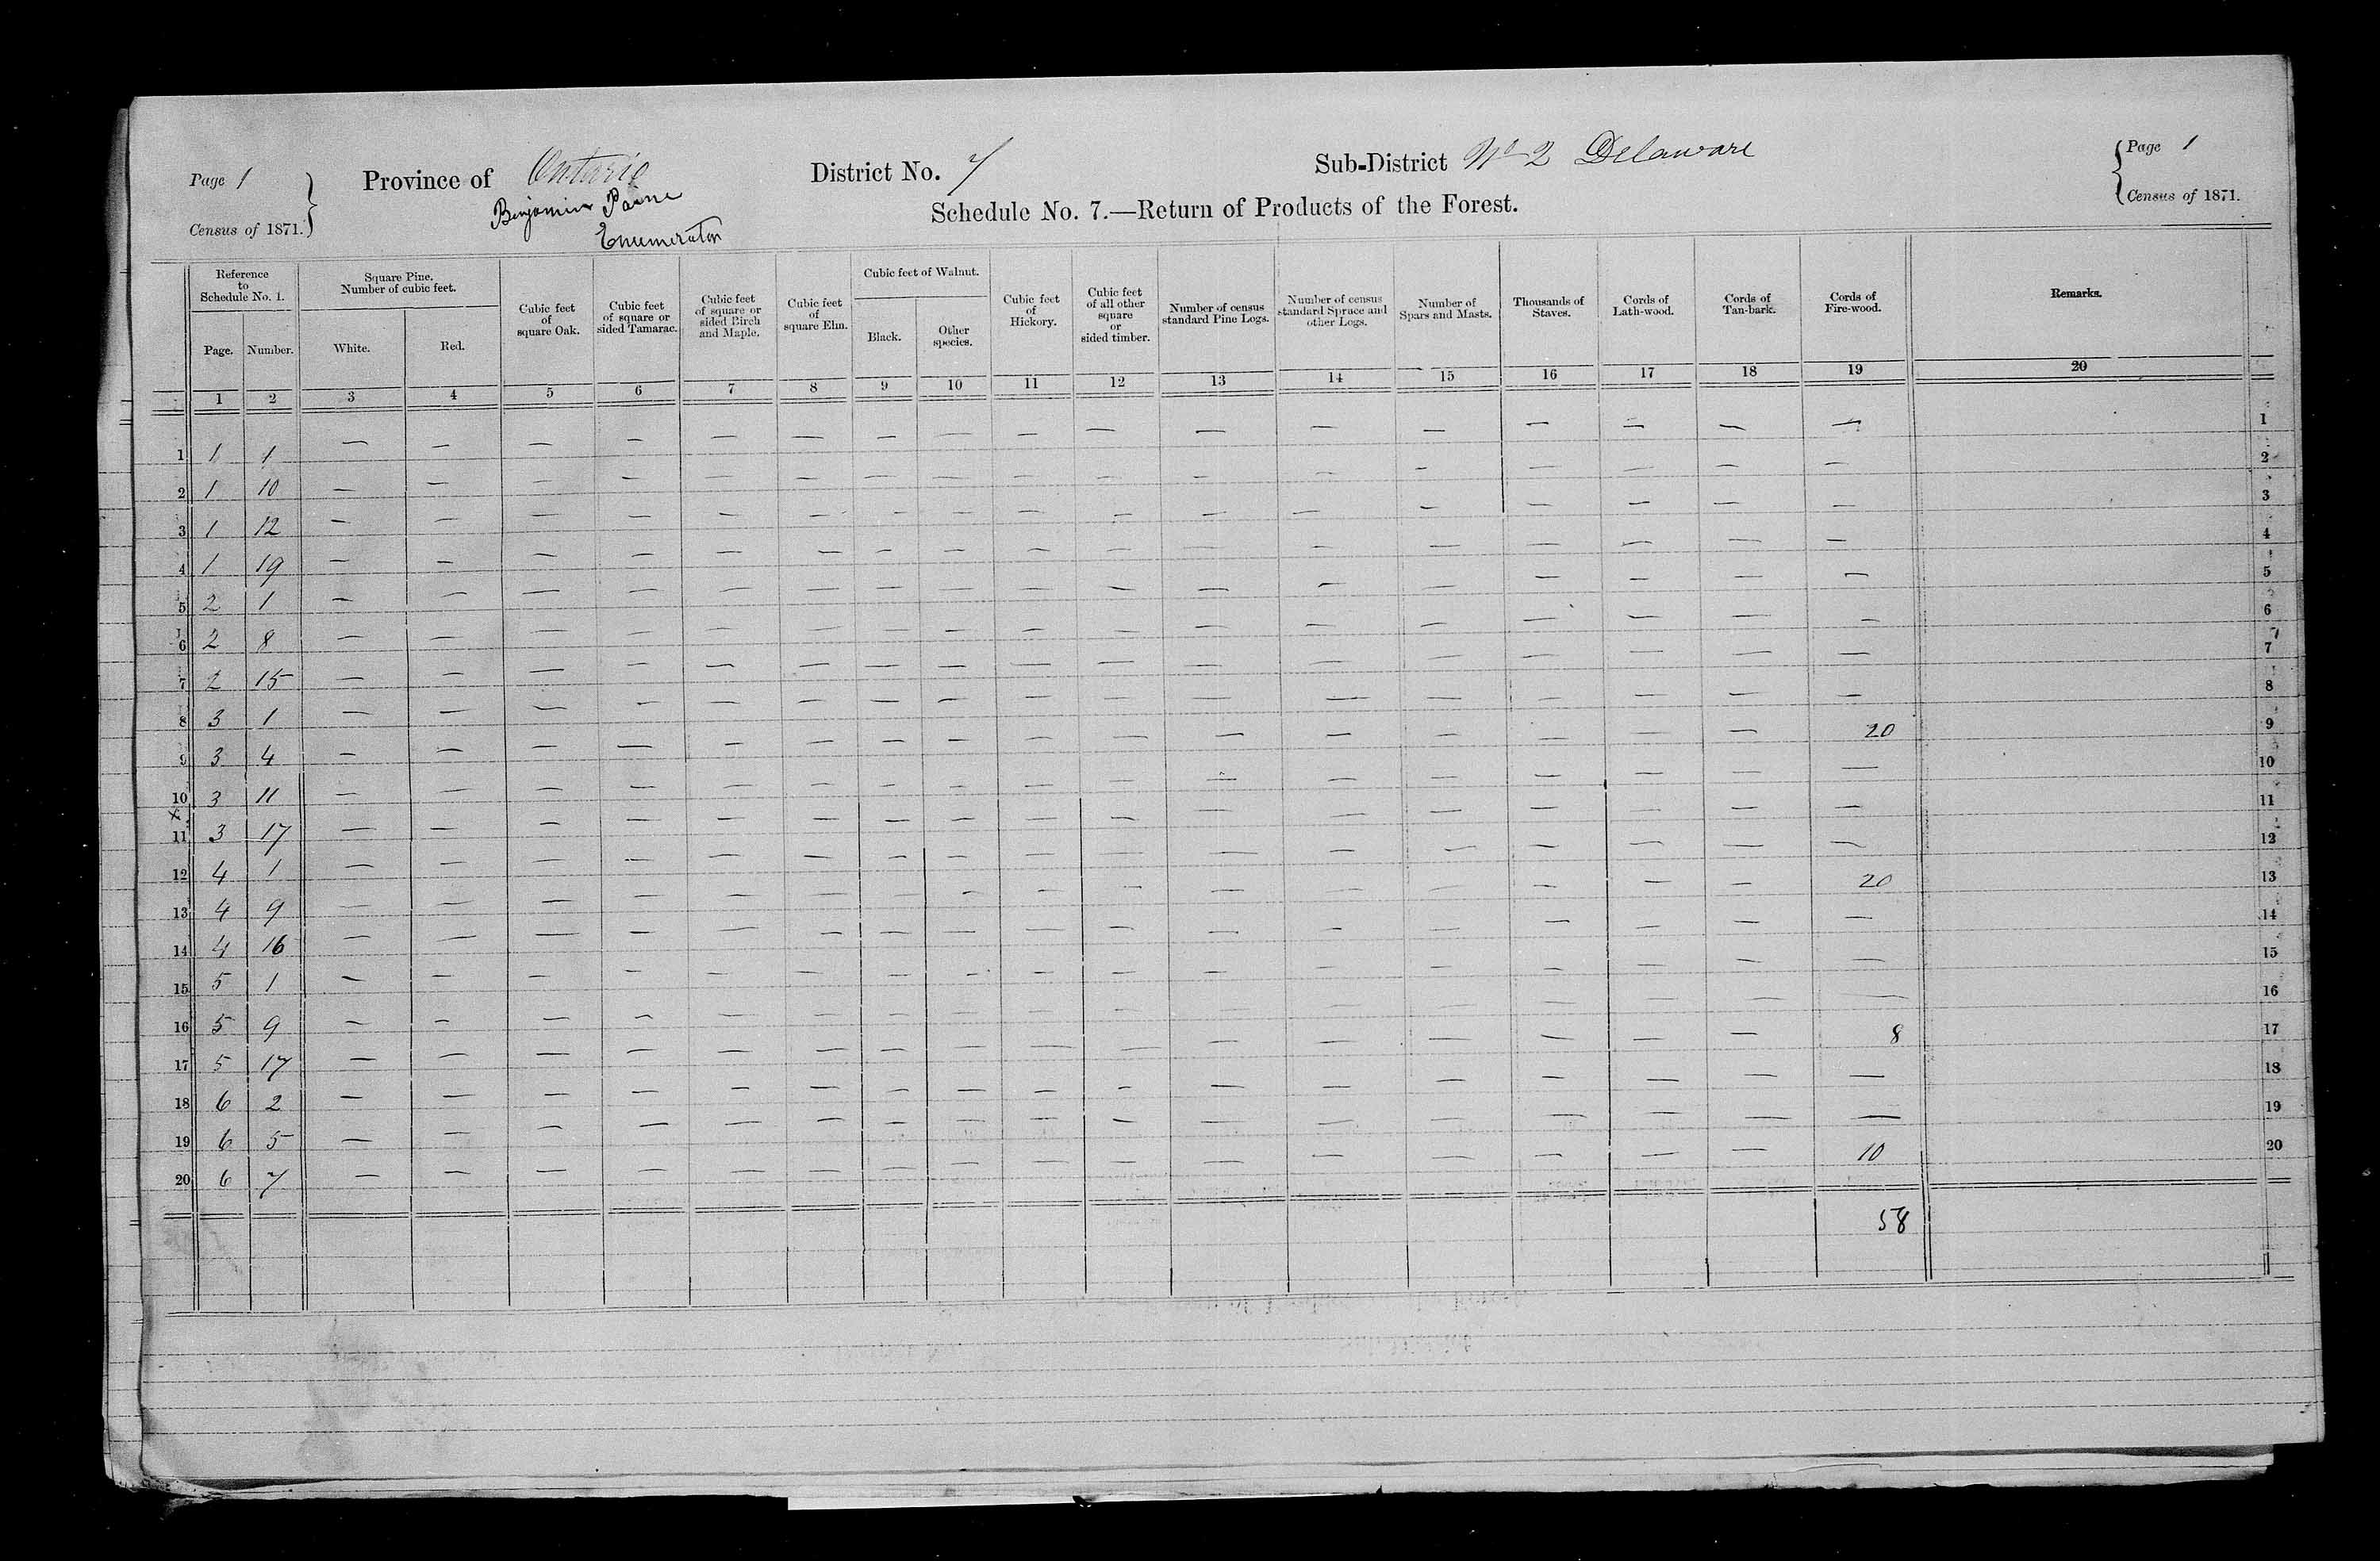 Page 1
Census of 1871.
Province of Ontario
Benjamin Paine
Enumerator
District No. 7
Sub-District No 2 Delaware
Page 1
Census of 1871.
Schedule No. 7.—Return of Products of the Forest.
Reference to Schedule No. 1.
Page. Number.
Square Pine. Number of cubic feet.
White. Red.
Cubic feet of square Oak.
Cubic feet of square or sided Tamarac.
Cubic feet of square or sided Birch and Maple.
Cubic feet of square Elm.
Cubic feet of Walnut.
Black. Other species.
Cubic feet of Hickory.
Cubic feet of all other square or sided timber.
Number of census standard Pine Logs.
Number of census standard Spruce and other Logs.
Number of Spars and Masts.
Thousands of Staves.
Cords of Lath-wood.
Cords of Tan-bark.
Cords of Fire-wood.
Remarks.
1 2 3 4 5 6 7 8 9 10 11 12 13 14 15 16 17 18 19 20
1 1 1 — — — — — — — — — — — — — — — — — 1
2 1 10 — — — — — — — — — — — — — — — — — 2
3 1 12 — — — — — — — — — — — — — — — — — 3
4 1 19 — — — — — — — — — — — — — — — — — 4
5 2 1 — — — — — — — — — — — — — — — — — 5
6 2 8 — — — — — — — — — — — — — — — — — 6
7 2 15 — — — — — — — — — — — — — — — — — 7
8 3 1 — — — — — — — — — — — — — — — — — 8
9 3 4 — — — — — — — — — — — — — — — — 20 9
10 3 11 — — — — — — — — — — — — — — — — — 10
11 3 17 — — — — — — — — — — — — — — — — — 11
12 4 1 — — — — — — — — — — — — — — — — — 12
13 4 9 — — — — — — — — — — — — — — — — 20 13
14 4 16 — — — — — — — — — — — — — — — — — 14
15 5 1 — — — — — — — — — — — — — — — — — 15
16 5 9 — — — — — — — — — — — — — — — — — 16
17 5 17 — — — — — — — — — — — — — — — — 8 17
18 6 2 — — — — — — — — — — — — — — — — — 18
19 6 5 — — — — — — — — — — — — — — — — — 19
20 6 7 — — — — — — — — — — — — — — — — 10 20
58